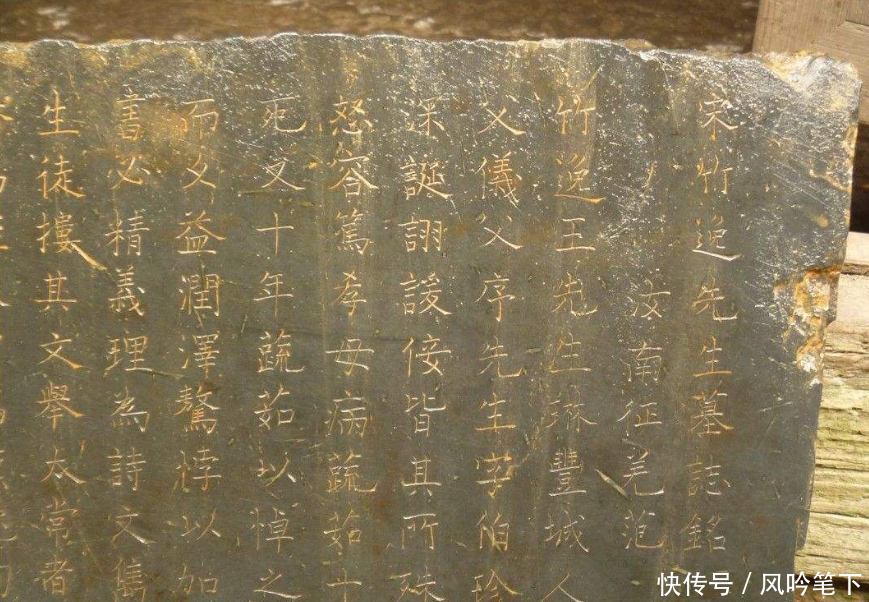 宋竹逸先生墓誌銘
汝南征羌范
竹逸王先生琳豐城人
父儀父序先生字伯珍
深誕詡諼倿皆其所殊
怒容篤孝母病蔬茹十
死又十年蔬茹以悼之
而久益潤澤驁悖以加
書必精義理為詩文雋
生徒摟其文舉太常者
快传号 / 风吟笔下